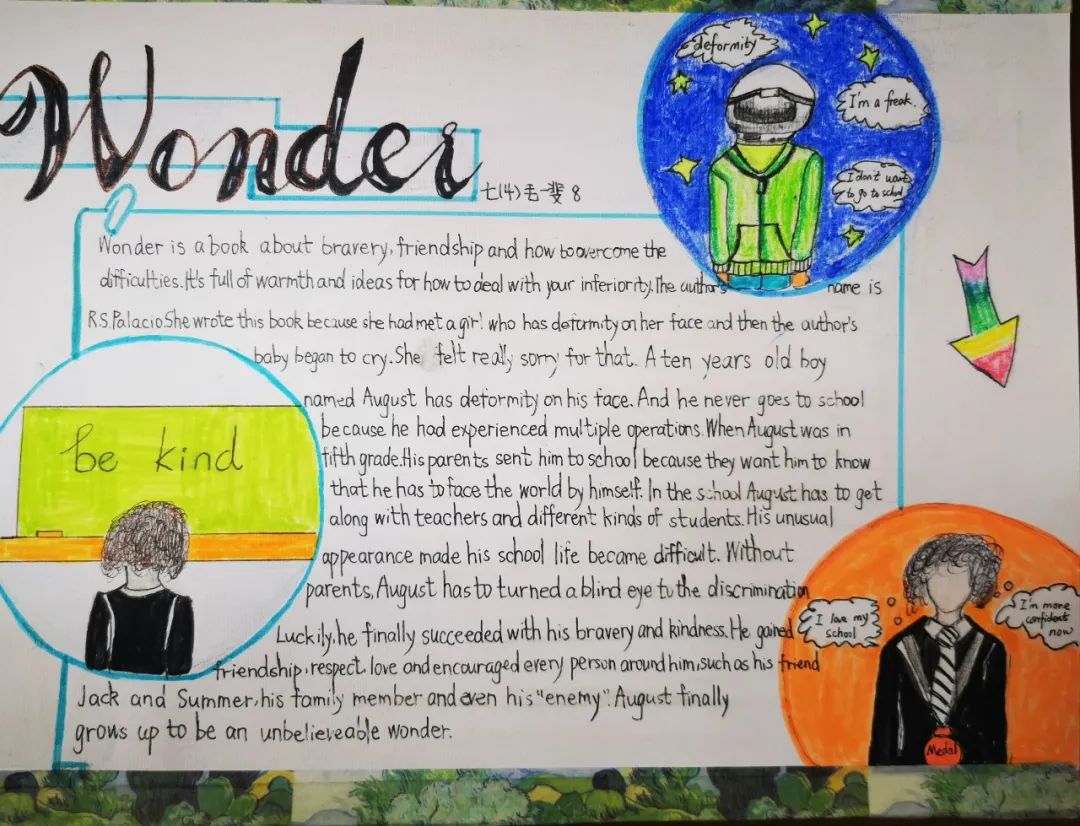 Wonder
七(4) 毛一斐 8
deformity
I'm a freak.
I don't want
to go to school
Wonder is a book about bravery, friendship and how to overcome the
difficulties. It's full of warmth and ideas for how to deal with your inferiority. The author's name is
R.S. Palacio. She wrote this book because she had met a girl who has deformity on her face and then the author's
baby began to cry. She felt really sorry for that. A ten years old boy
named August has deformity on his face. And he never goes to school
because he had experienced multiple operations. When August was in
fifth grade. His parents sent him to school because they want him to know
that he has to face the world by himself. In the school August has to get
along with teachers and different kinds of students. His unusual
appearance made his school life became difficult. Without
parents, August has to turned a blind eye to the discrimination
Luckily, he finally succeeded with his bravery and kindness. He gained
friendship, respect, love and encouraged every person around him, such as his friend
Jack and Summer, his family member and even his "enemy". August finally
grows up to be an unbelieveable wonder.
be kind
I love my
school
I'm more
confident
now
Medal